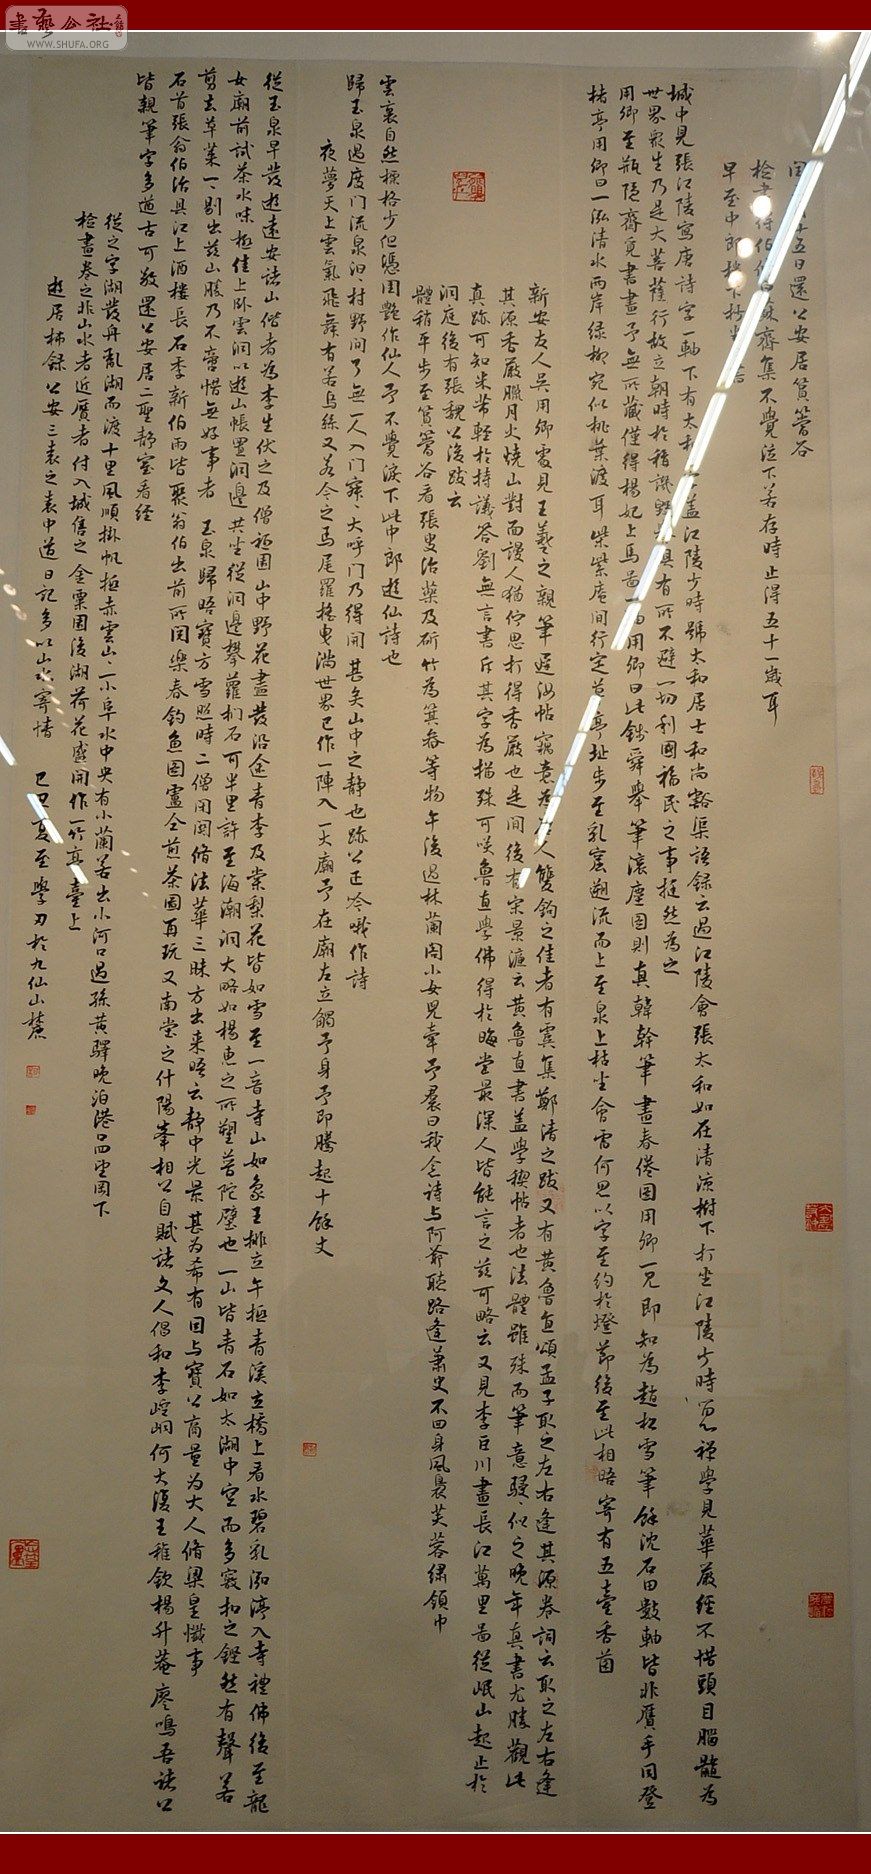 書藝公社
WWW.SHUFA.ORG
十五日還公安居篔簹谷
檢書得伯修白蘇齋集不覺泣下若存時止得五十一歲耳
早至中郎
城中見張江陵寫唐詩字一軸下有太和盖江陵少時號太和居士和尚豁渠語錄云過江陵會張太和如在清涼樹下打坐江陵少時留心禪學見華嚴經不惜頭目腦髓為
世界眾生乃是大菩薩行故立朝時於稱譏毀譽具有所不避一切利國福民之事挺然為之
用卿至瓶隱齋覓書畫予無所藏僅得楊妃上馬啚一曲用卿曰此錢舜舉筆滾塵圖則真韓幹筆畫春倦圖用卿一見即知為趙松雪筆餘沈石田數軸皆非贋手同登
楮亭用卿曰一泓清水兩岸綠柳宛似桃葉渡耳紫紫庵間行定草亭址步至乳窟溯流而上至泉上枯坐會雷何思以字至約於燈節後至此相晤寄有五臺香茵
新安友人吳用卿處見王羲之親筆遲汝帖竊意為唐人雙鉤之佳者有虞集鄭清之跋又有黃魯直頌孟子取之左右逢其源卷詞云取之左右逢
其源香嚴臘月火燒山對而謾人猶佇思打得香嚴也是間後有宋景濂云黃魯直書盖學禊帖者也法體雖殊而筆意駸〻似之晚年真書尤勝觀此
真跡可知米芾輕於持議答劉無言書斥其字為描殊可咲魯直學佛得於晦堂最深人皆能言之茲可略云又見李巨川畫長江萬里啚從岷山起止於
洞庭後有張魏公浚跋云
體稍平步至篔簹谷看張叟治藥及斫竹為箕舂等物午後過林蘭閣小女兒牽予裙曰我念詩与阿爺聽路逢蕭史不回身風裊芙蓉繡領巾
雲裏自然標格少但憑圖艷作仙人予不覺淚下此中郎遊仙詩也
歸玉泉過度門流泉汩村野間了無一人入門寂〻大呼門乃得開甚矣山中之靜也跡公正冷哦作詩
夜夢天上雲氣飛舞有若烏絲又若今之馬尾羅搖曳滿世界已作一陣入一大廟予在廟左立觸予身予即騰起十餘丈
從玉泉早發遊遠安諸山偕者為李生伏之及僧祖圓山中野花盡發沿途青李及棠梨花皆如雪至一音寺山如象王排立午極青溪立橋上看水碧乳泓渟入寺禮佛後至龍
女廟前試茶水味極佳上臥雲洞以遊山帳置洞邊共坐從洞邊攀蘿捫石可半里許至海潮洞大略如楊惠之所塑普陀壁也一山皆青石如太湖中空而多竅扣之鏗然有聲若
剪去草萊一〻剔出茲山勝乃不啻惜無好事者玉泉歸晤寶方雪照時二僧閉関修法華三昧方出來晤云靜中光景甚為希有因与寶公商量為大人修梁皇懺事
石首張翁伯治具江上酒樓長石李新伯雨皆聚翁伯出前所閱樂春釣魚圖盧仝煎茶圖再玩又南堂之什陽峯相公自賦諸文人倡和李崆峒何大復王稚欽楊升菴廖鳴吾諸公
皆親筆字多遒古可敬還公安居二聖靜室看經
從之字湖發舟亂湖而渡十里風順掛帆極赤雲山〻一小阜水中央有小蘭若出小河口過孫黃驛晚泊港口望岡下
檢畫卷之非山水者近贋者付入城售之金粟園後湖荷花盛開作一竹亭臺上
遊居柿錄公安三袁之袁中道日記多以山水寄情己丑夏至學刀於九仙山麓